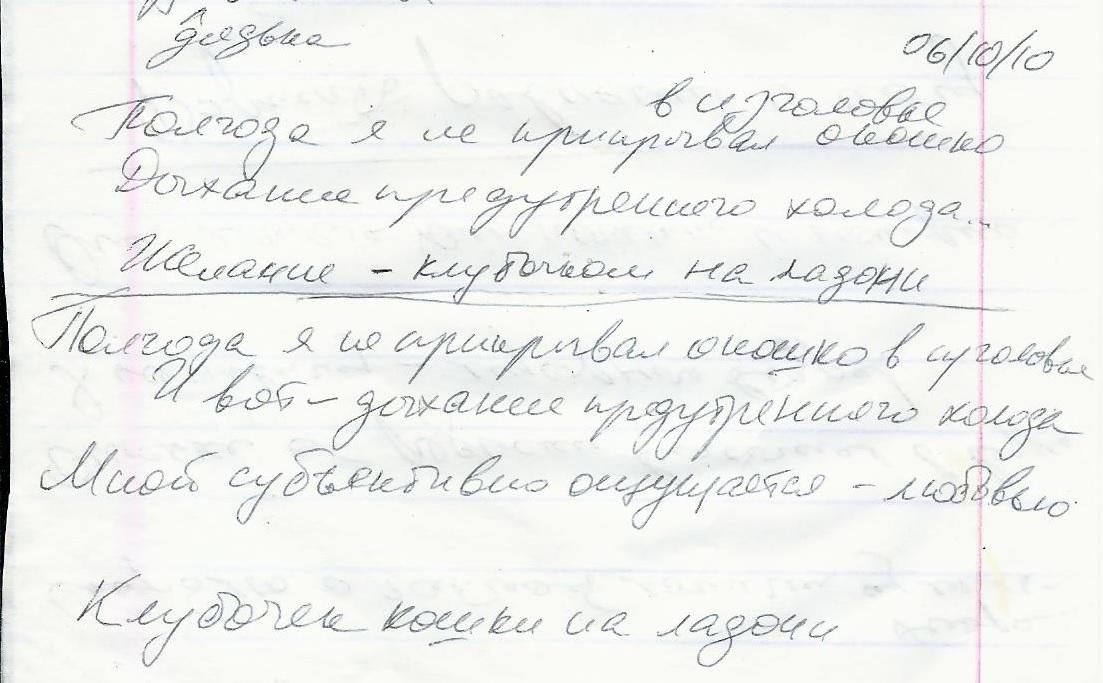 06/10/10
в изголовье
Полгода я не прикрывал окошко
Дыхание предутренного холода...
Желание - клубочком на ладони
Полгода я не прикрывал окошко в изголовье
И вот - дыхание предутренного холода
Мной субъективно ощущается - любовью.
Клубочек кошки на ладони